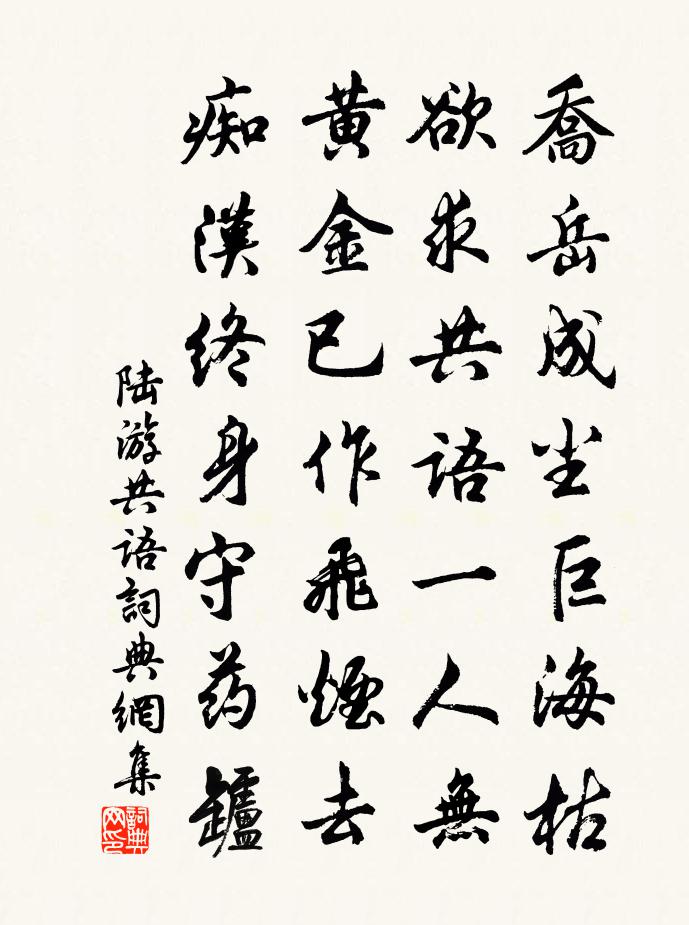 喬岳成尘巨海枯
欲求共語一人無
黃金已作飛煙去
痴漢终身守药鑪
陆游共語詞典網集
詞典网印